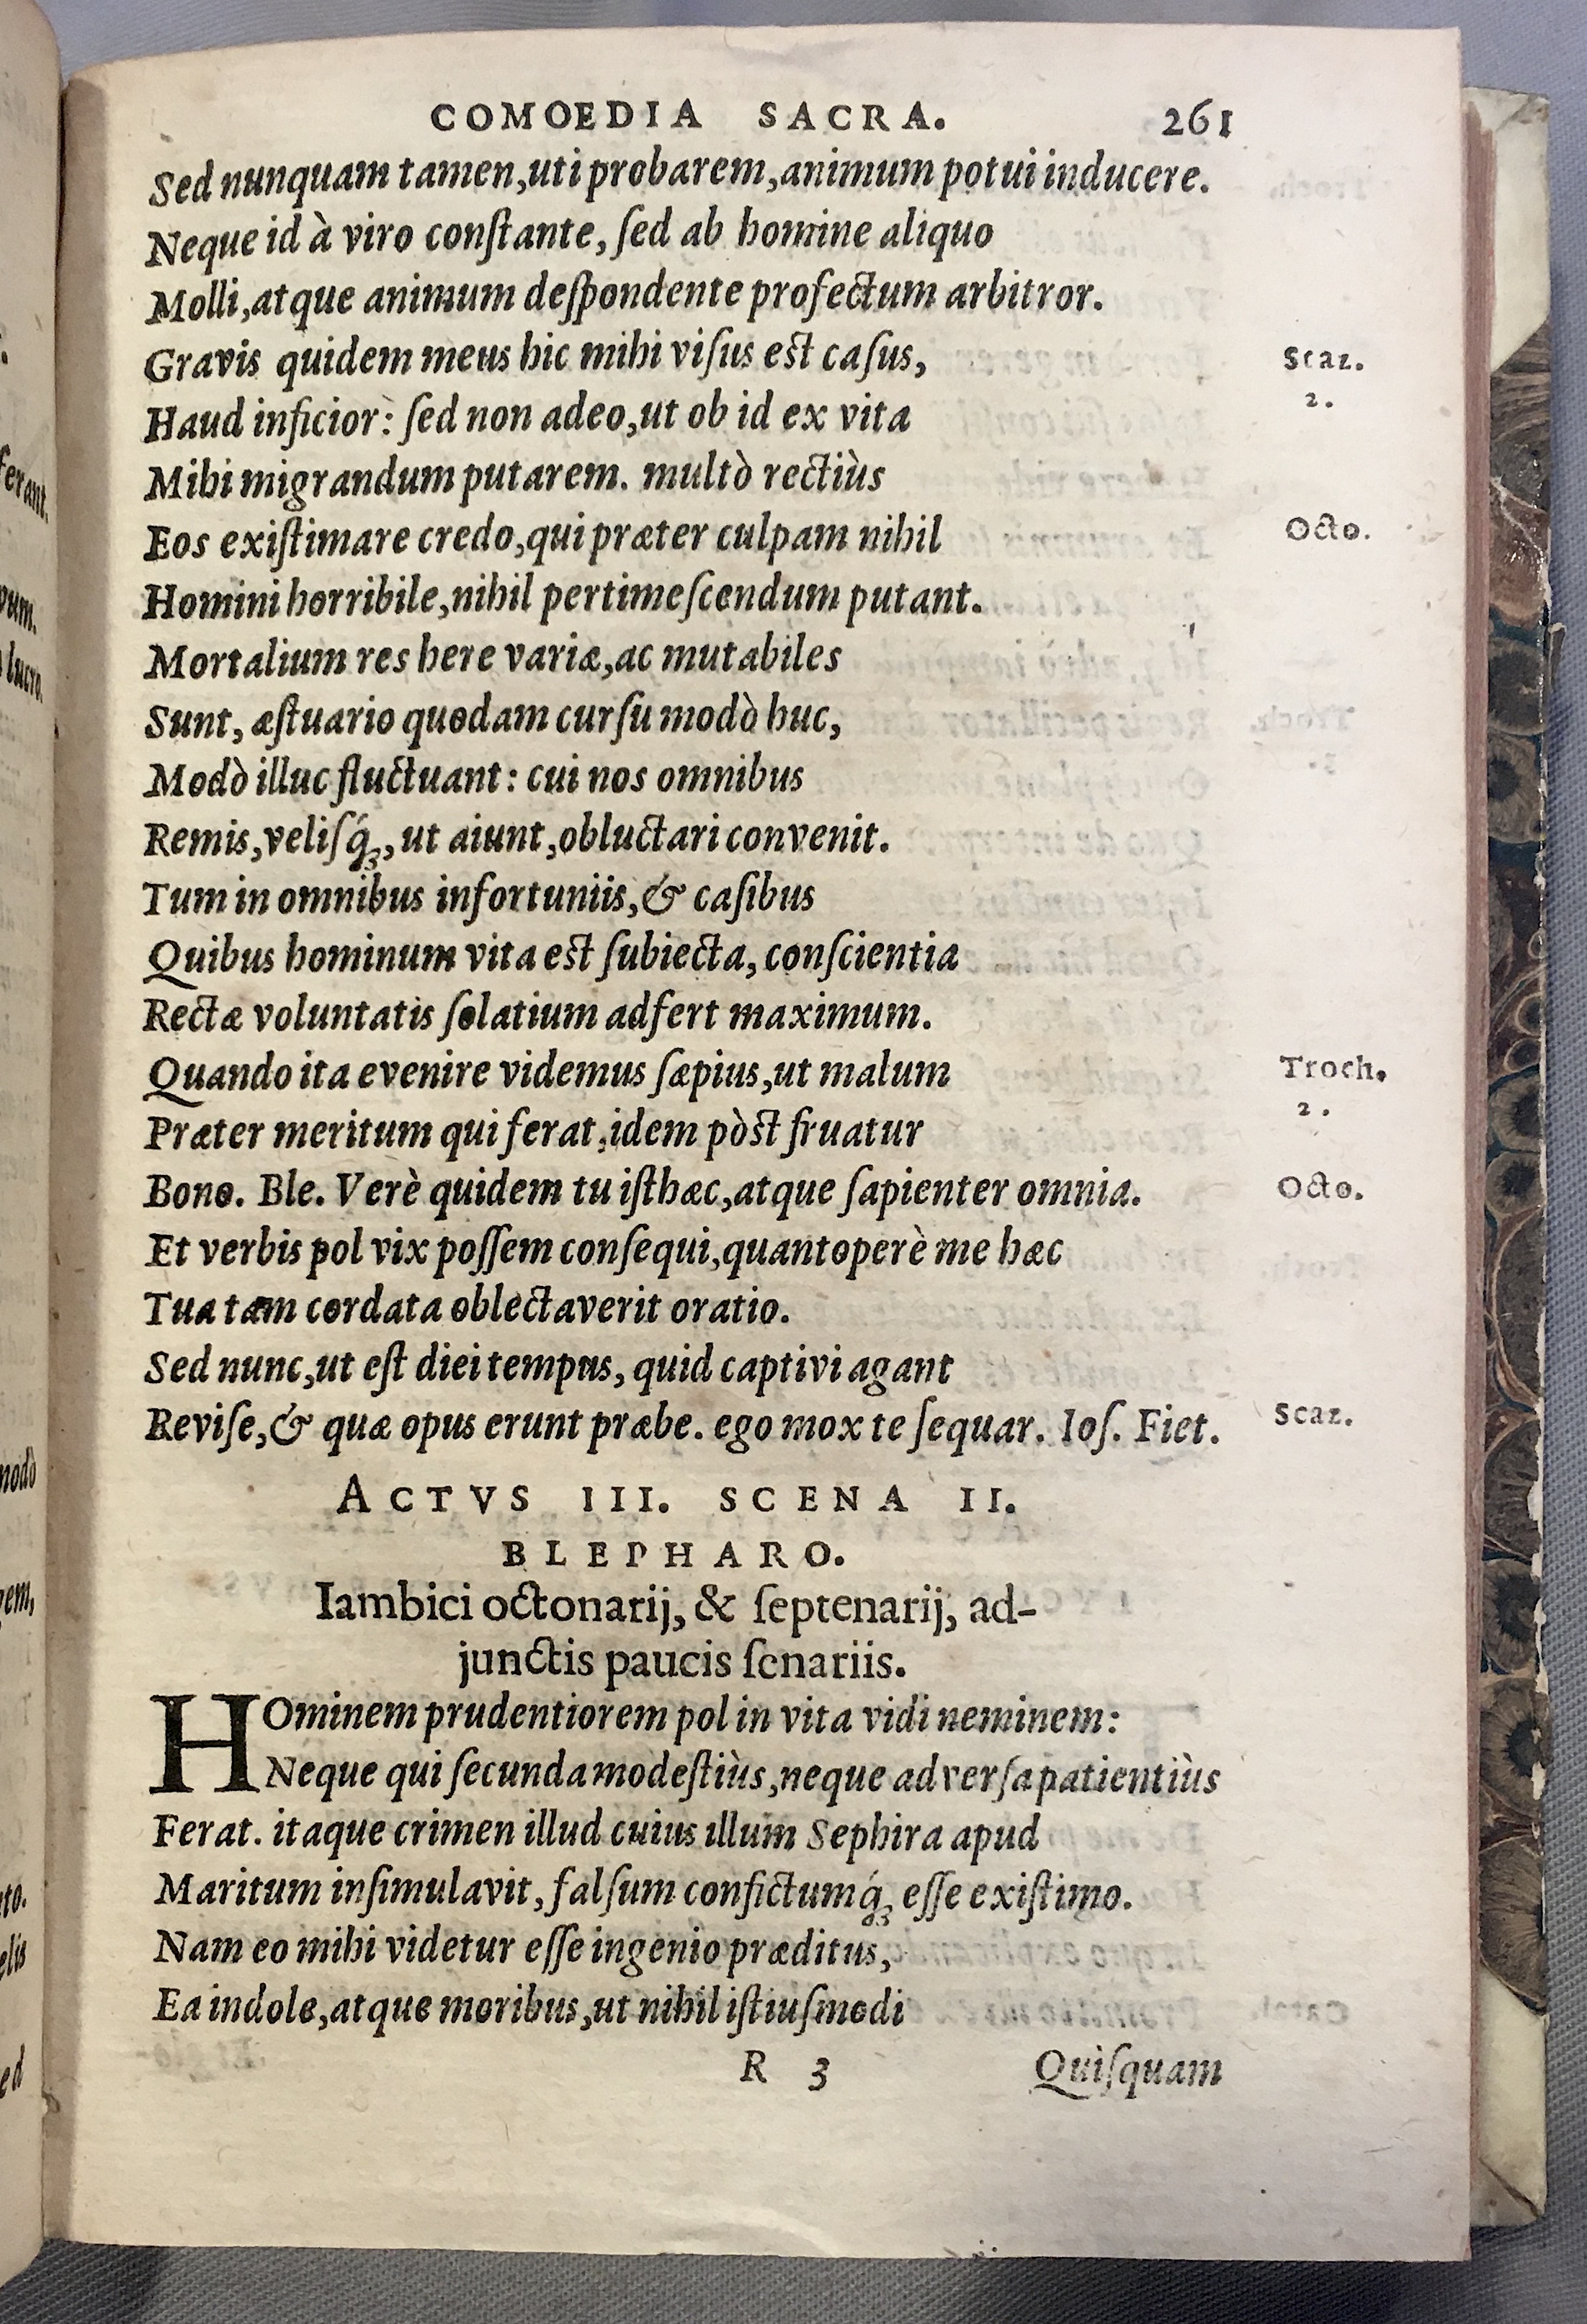 COMOEDIA SACRA. 261
Sed nunquam tamen,uti probarem,animum potui inducere.
Neque id à viro conſtante, ſed ab homine aliquo
Molli,atque animum deſpondente profectum arbitror.
Gravis quidem meus hic mihi viſus eſt caſus, Scaz.
2.
Haud inficior: ſed non adeo,ut ob id ex vita
Mihi migrandum putarem. multò rectiùs
Eos exiſtimare credo,qui præter culpam nihil Octo.
Homini horribile,nihil pertimeſcendum putant.
Mortalium res here variæ,ac mutabiles
Sunt, æſtuario quodam curſu modò huc,
Modò illuc fluctuant: cui nos omnibus
Remis,veliſq́ꝫ,ut aiunt,obluctari convenit.
Tum in omnibus infortuniis,& caſibus
Quibus hominum vita eſt ſubiecta, conſcientia
Rectæ voluntatis ſolatium adfert maximum.
Quando ita evenire videmus ſæpius,ut malum Troch.
2.
Præter meritum qui ferat,idem pòſt fruatur
Bono. Ble. Verè quidem tu iſthæc,atque ſapienter omnia. Octo.
Et verbis pol vix poſſem conſequi,quantoperè me hæc
Tua tam cordata oblectaverit oratio.
Sed nunc,ut eſt diei tempus, quid captivi agant
Reviſe,& quæ opus erunt præbe. ego mox te ſequar. Ioſ. Fiet. Scaz.
ACTVS III. SCENA II.
BLEPHARO.
Iambici octonarij, & ſeptenarij, ad-
junctis paucis ſenariis.
HOminem prudentiorem pol in vita vidi neminem:
Neque qui ſecunda modeſtiùs,neque adverſa patientiùs
Ferat. itaque crimen illud cuius illum Sephira apud
Maritum inſimulavit, falſum confictumq́ꝫ eſſe exiſtimo.
Nam eo mihi videtur eſſe ingenio præditus,
Ea indole,atque moribus,ut nihil iſtiuſmodi
R 3 Quiſquam